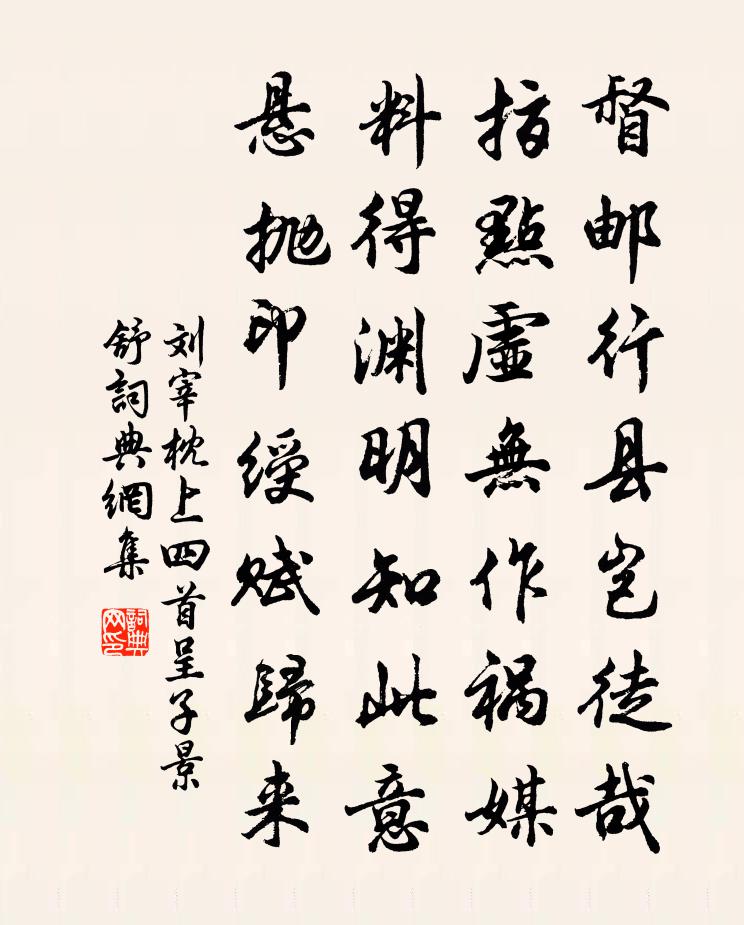 督邮行县岂徒哉
指點虚無作祸媒
料得渊明知此意
悬抛印绶赋歸来
刘宰枕上四首呈子景
舒詞典網集
詞典
网印